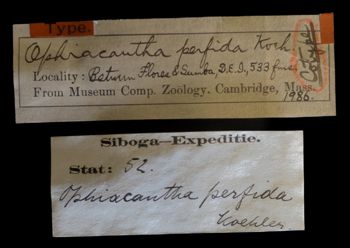 Type.
Ophiacantha perfida Koeh.
Locality: Betwen Flores & Sumba, D.E.I., 533 fms
From Museum Comp. Zoölogy. Cambridge, Mass.
1986.
Cotype
Siboga—Expeditie.
Stat: 52.
Ophiacantha perfida
Koehler